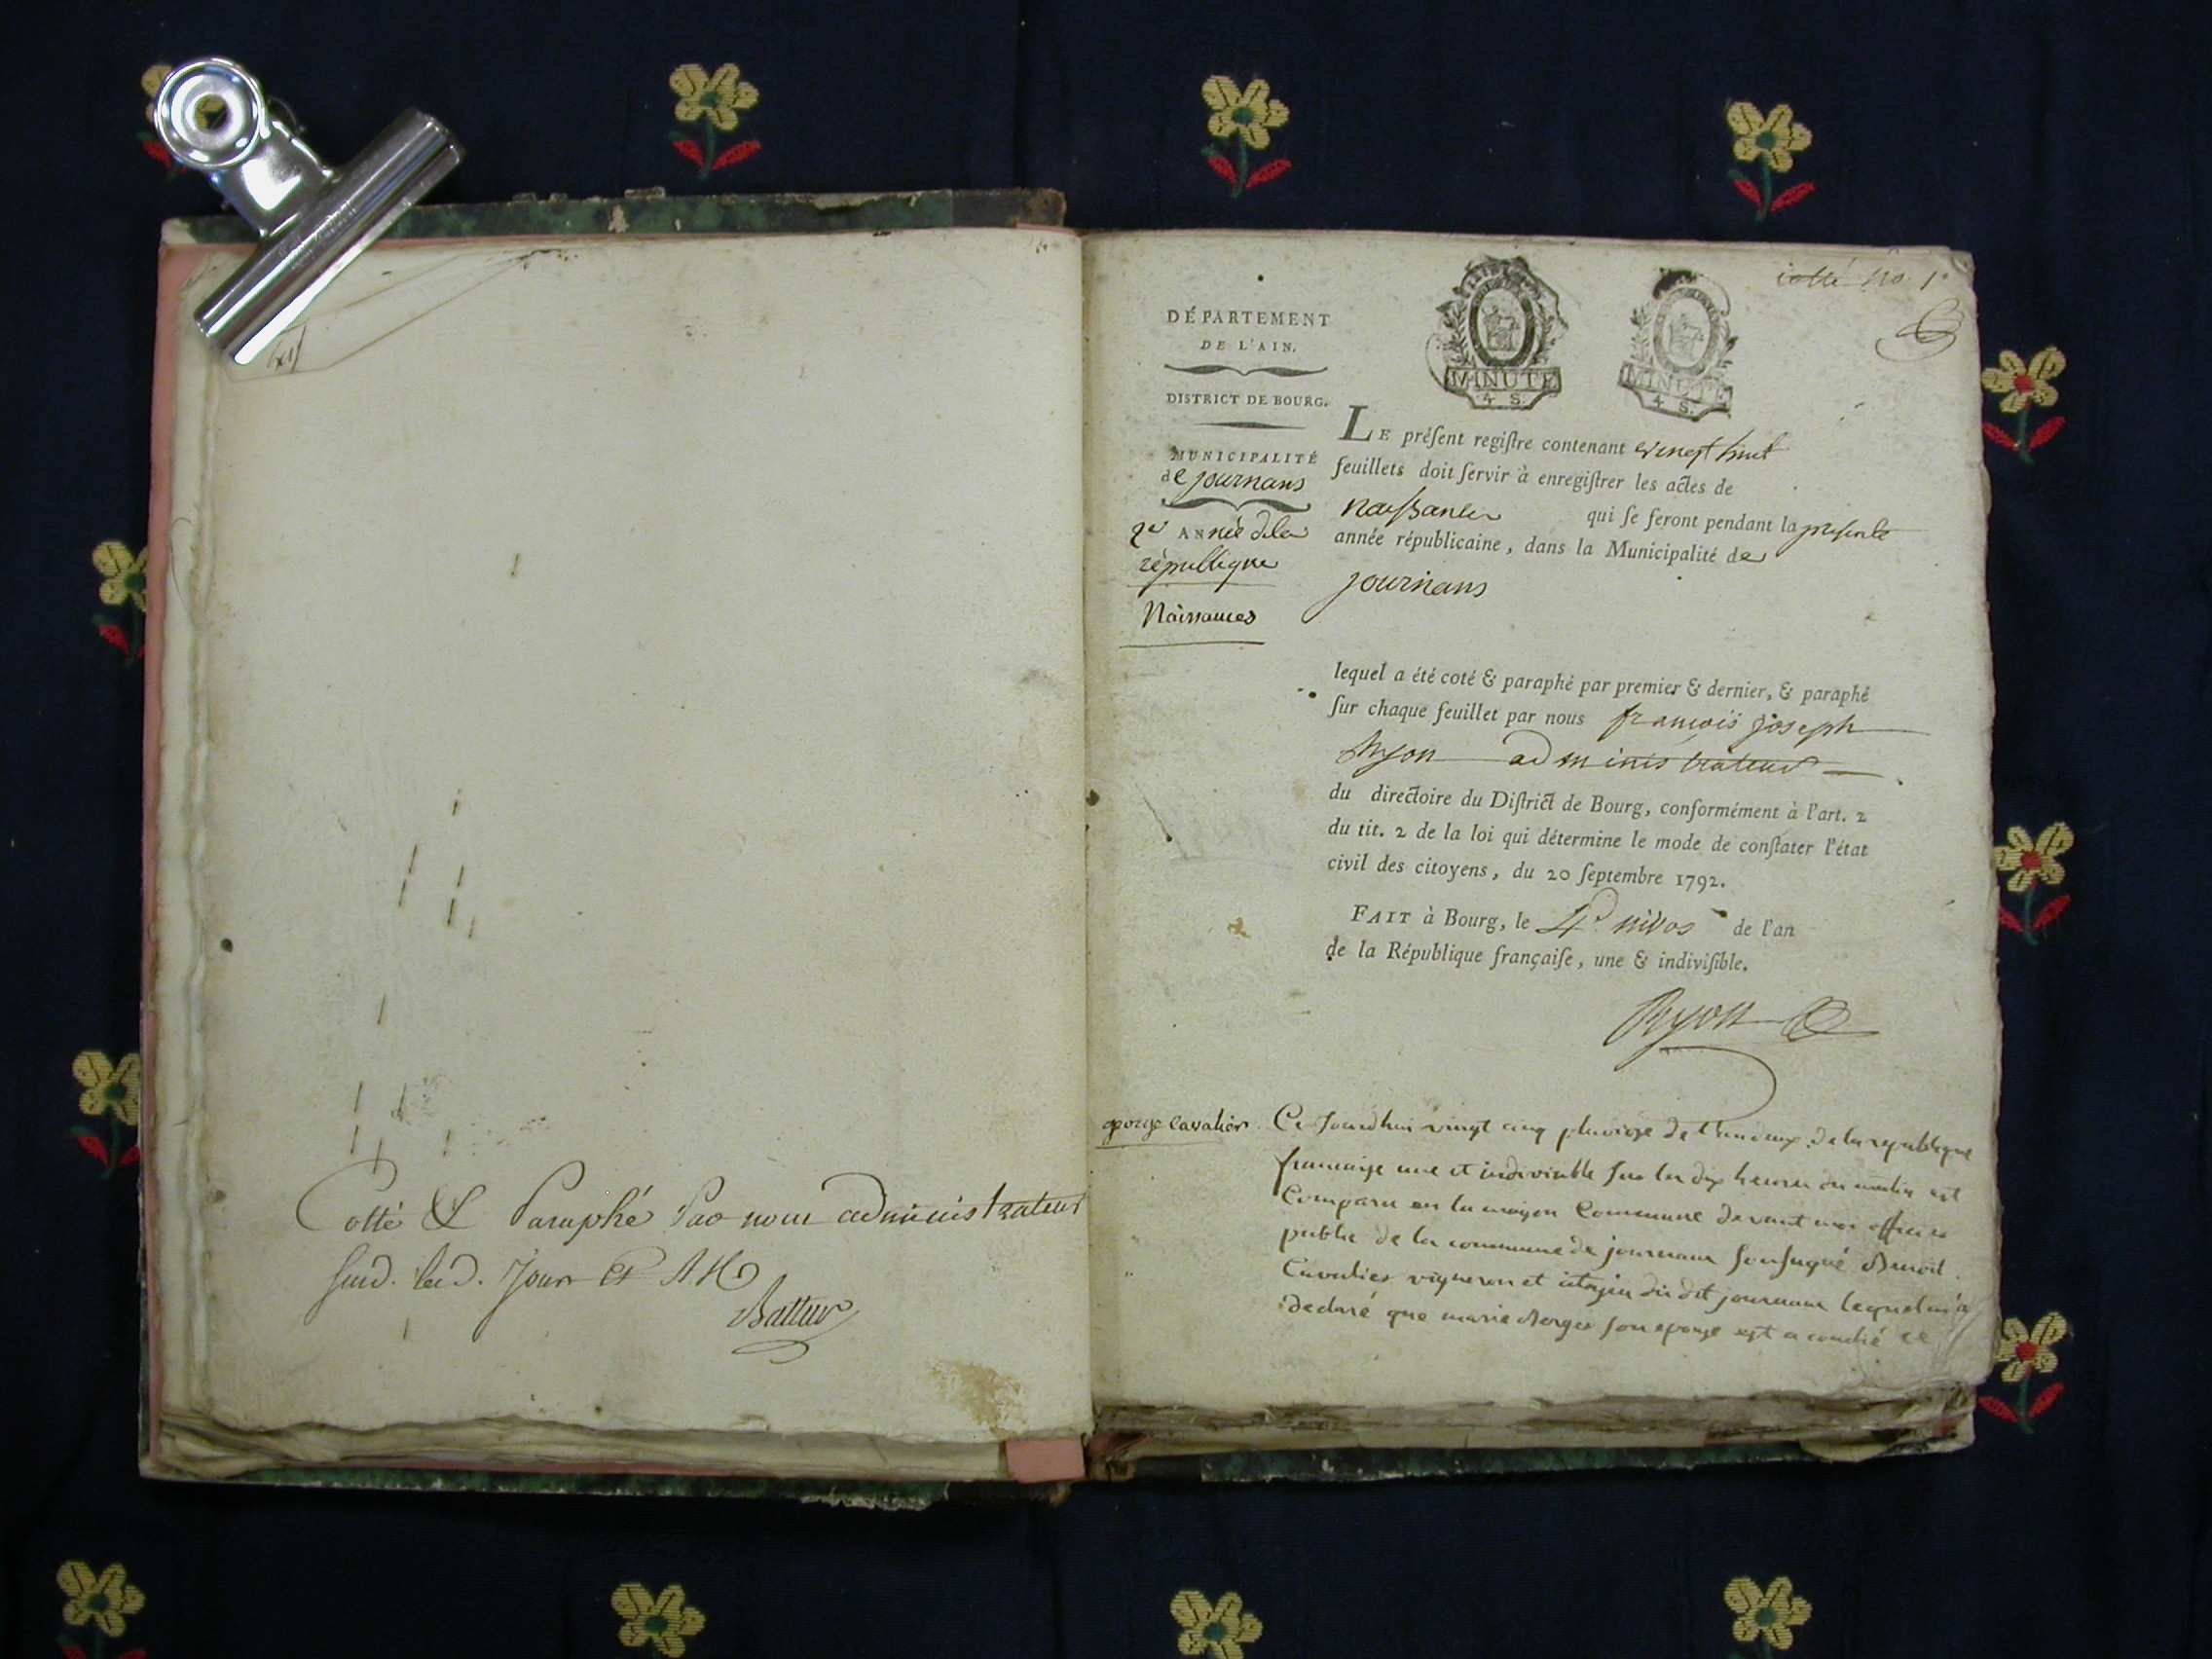 Cotté & Paraphé Par nous administrateur
susd. led. Jour et
Battur
cotté no. 1.
MINUTE
4 S.
MINUTE
4 S.
DÉPARTEMENT
DE L'AIN.
DISTRICT DE BOURG.
MUNICIPALITÉ
de journans
2e ANnée de la
république
Naissances
LE préſent regiſtre contenant vingt huit
feuillets doit ſervir à enregiſtrer les actes de
naissances qui ſe feront pendant la presente
année républicaine, dans la Municipalité de
journans
lequel a été coté & paraphé par premier & dernier, & paraphé
ſur chaque feuillet par nous francois joseph
administrateur
du directoire du Diſtrict de Bourg, conformément à l'art. 2
du tit. 2 de la loi qui détermine le mode de conſtater l'état
civil des citoyens, du 20 ſeptembre 1792.
FAIT à Bourg, le 4e nivos de l'an
de la République françaiſe, une & indiviſible.
george Cavalier
Ce Jourdhui vingt cinq pluviose de l'an deux de la republique
francaise une et indivisible sur les dix heures du matin est
Comparu en la maison Commune devant moi officier
public de la commune de journans soussigné Benoit
Cavalier vigneron et citoyen du dit journans lequel m'a
declaré que marie Berger son epouse est accouché ce